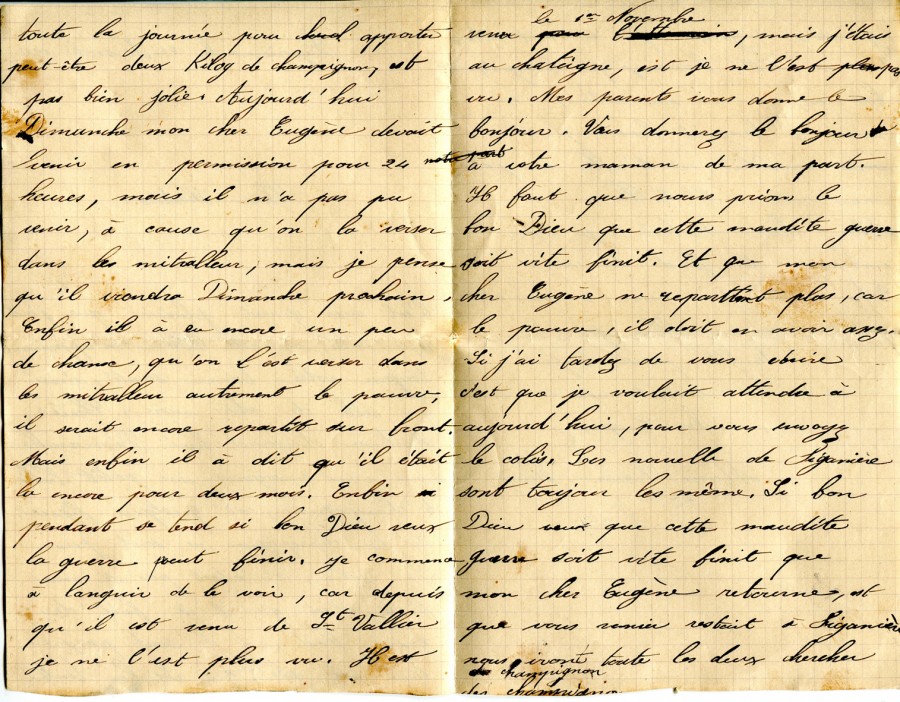 toute la journée pour apporter
peut-être deux Kilog de champignon, est
pas bien jolie. Aujourd'hui
Dimanche mon cher Eugène devait
venir en permission pour 24
heures, mais il n'a pas pu
venir, à cause qu'on la verser
dans les mitralleur, mais je pense
qu'il viendra Dimanche prochain,
Enfin il à eu encore un peu
de chance, qu'on l'est verser dans
les mitralleur autrement le pauvre,
il serait encore repartit sur front.
Mais enfin il à dit qu'il était
la encore pour deux mois. Enfin si
pendant se tend si bon Dieu veux
la guerre peut finir. Je commence
à languir de le voir, car depuis
qu'il est venu de St Vallier
je ne l'est plus vu. Il est
le 1er Novembre
venu, mais j'étais
au chataigne, est je ne l'est pas
vu. Mes parents vous donne le
bonjour. Vous donnerez le bonjour
à votre maman de ma part.
Il faut que nous prion le
bon Dieu que cette maudite guerre
soit vite finit. Et que mon
cher Eugène ne repartint plus, car
le pauvre, il doit en avoir assez.
Si j'ai tardez de vous écrire
c'est que je voulait attendre à
aujourd'hui, pour vous envoyz
le colis. Les nouvelle de Siganière
sont toujour les même. Si bon
Dieu veux que cette maudite
guerre soit vite finit que
mon cher Eugène retourne, est
que vous venier restait à Siganière
nous iront toute les deux chercher
des champignon